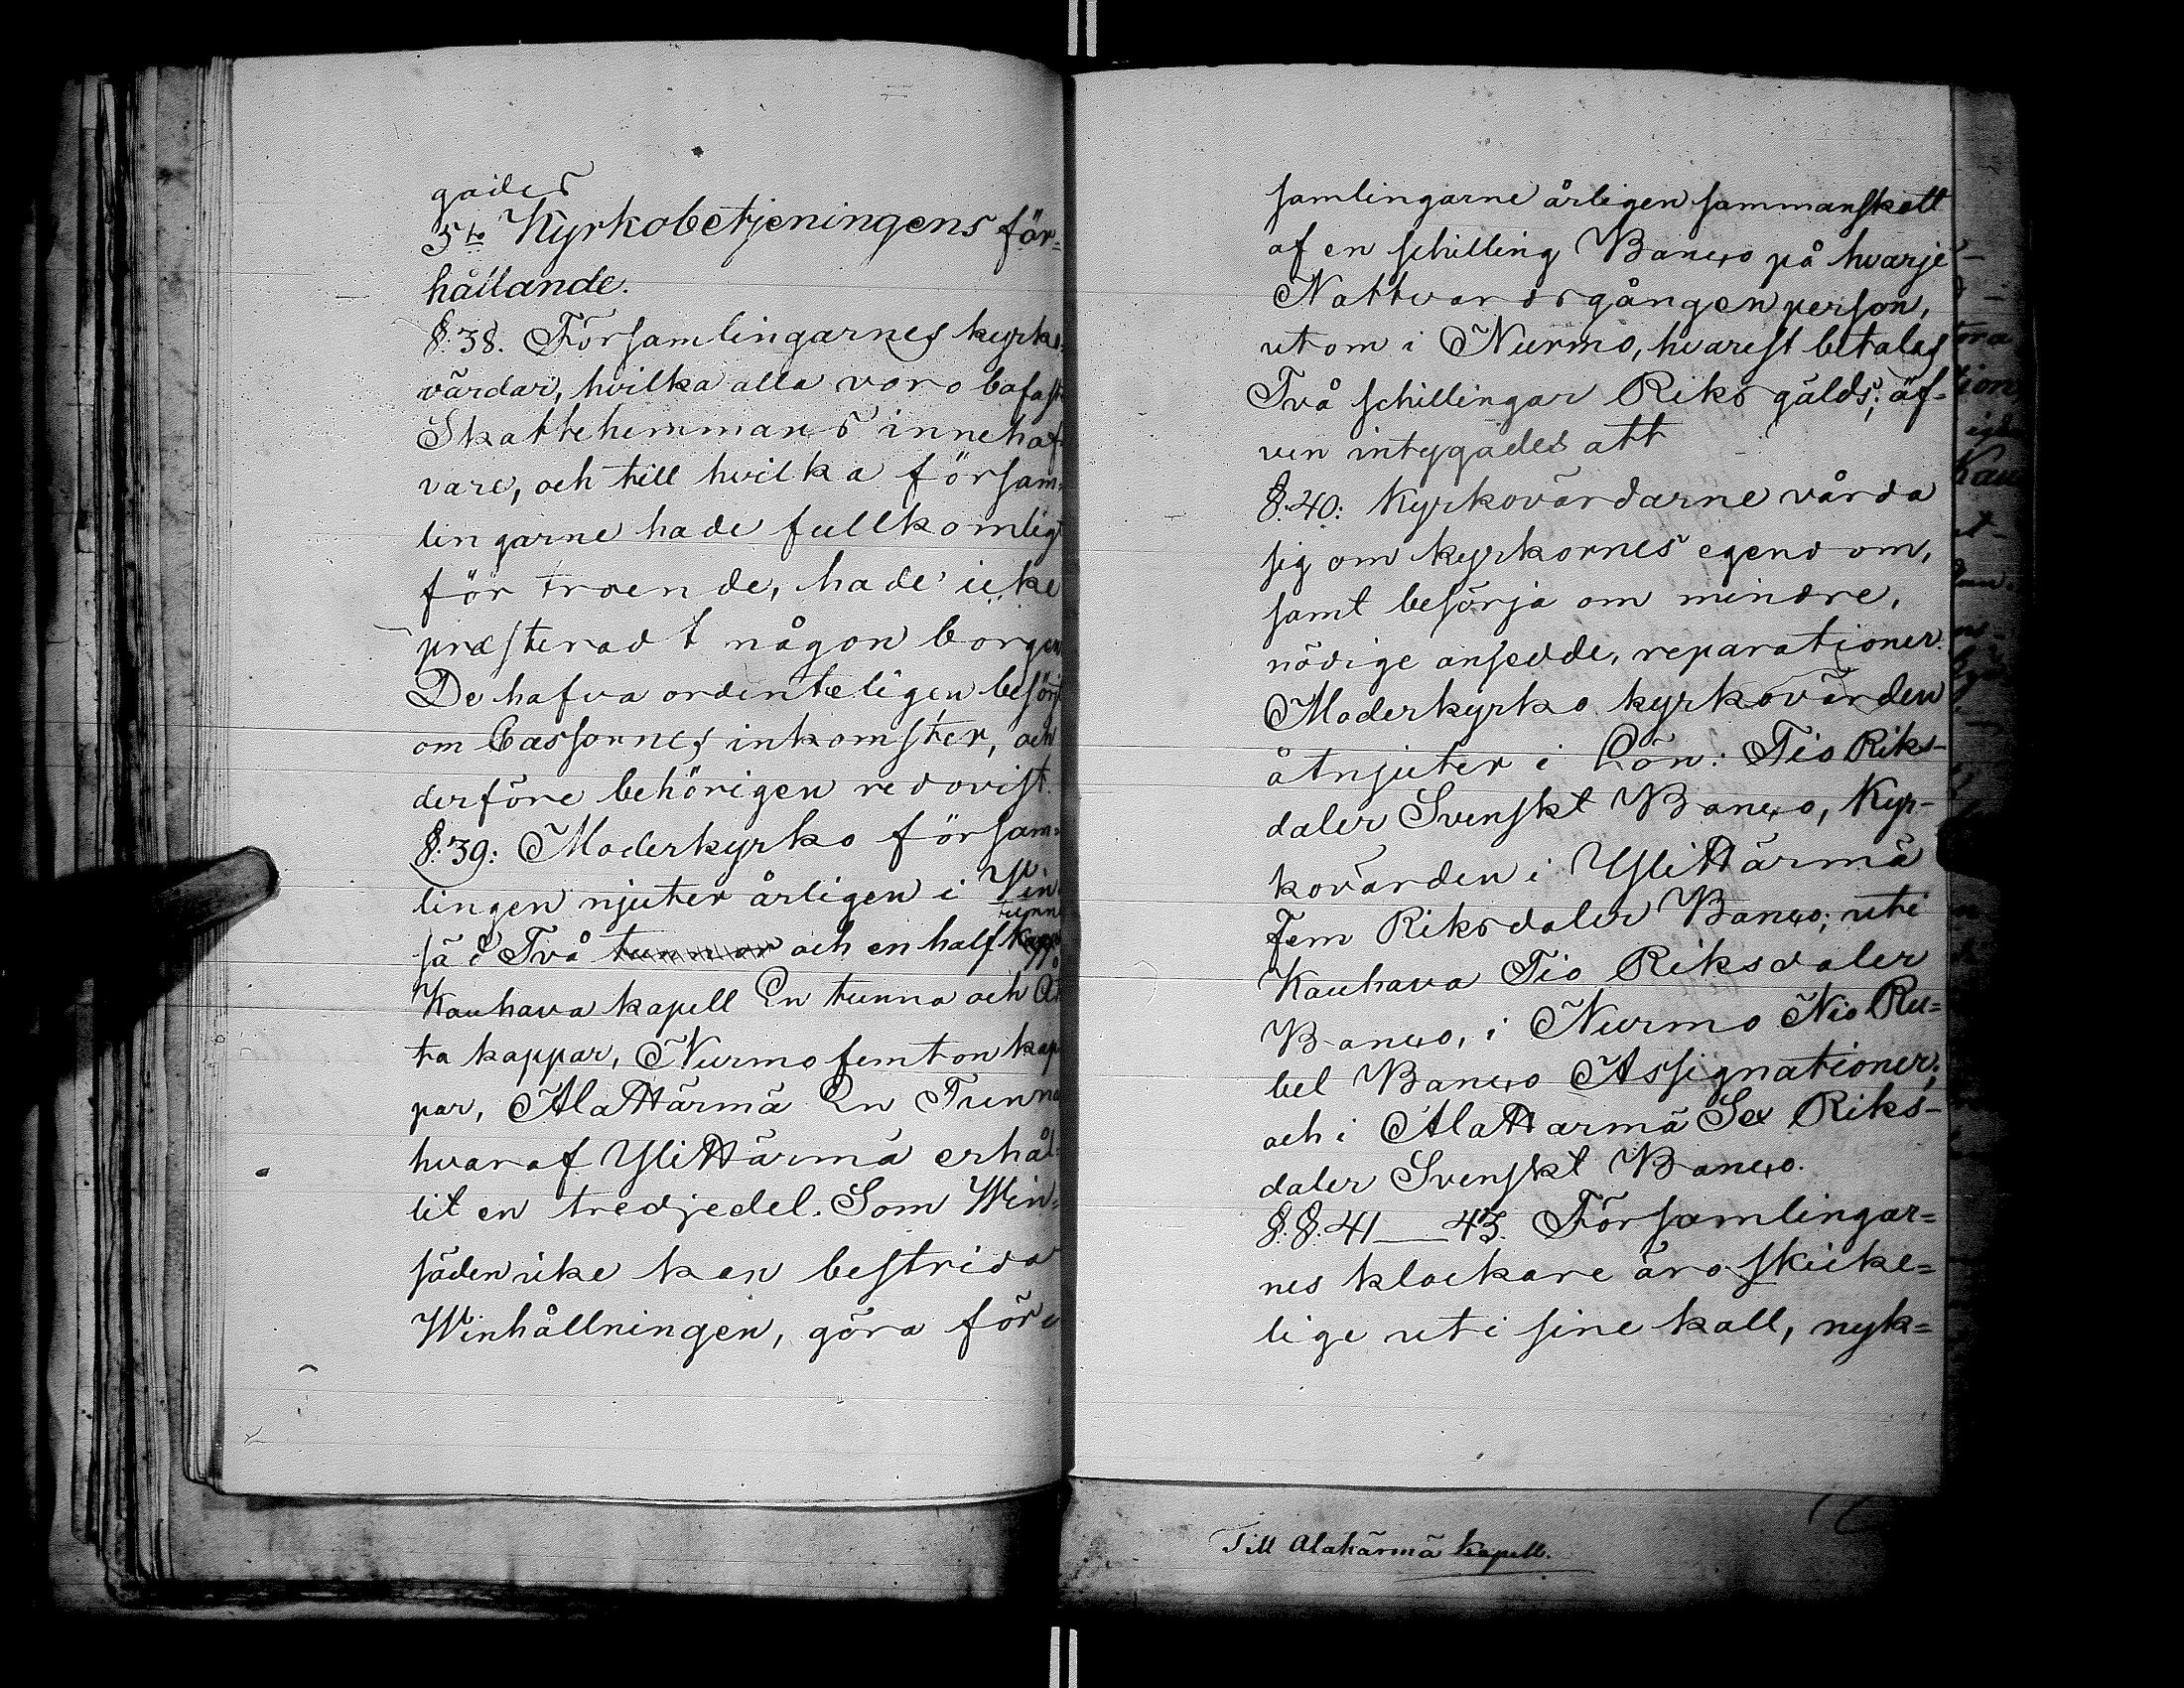 gades
5to Kyrkobetjeningens för=
hållande.
§.38. Församlingarnes kyrko=
värdar, hvilka alla voro bofaste
Skattehemmans innehaf=
vare, och till hvilka försam=
lingarne hade fullkomligt
förtroende, hade icke
præsteradt någon borgen
De hafva ordenteligen besörjt
om Cassornes inkomster, och
derföre behörigen redovist.
§.39: Moderkyrko försam=
lingen njuter årligen i Vin
tunn
säd Två tunnor och en half kapp
Kauhava kapell En tunna och Åt
ta kappar, Nurmo femton kap
par, AlaHärmä En Tunna
hvaraf YliHärmä erhål=
lit en tredjedel. Som Win=
säden icke kan bestrida
Winhållningen, göra för
samlingarne årligen sammanskott
af en schilling Banco på hvarje
Nattvardsgången person,
utom i Nurmo, hvarest betalas
Två schillingar Riksgälds; äf=
ven intygades att
§.40: Kyrkovärdarne vårda
sig om kyrkornes egendom,
samt besörja om mindre,
nödige ansedde, reparationer.
Moderkyrko kyrkovärden
åtnjuter i Lön: Tio Riks-
daler Svenskt Banco, Kyr-
kovärden i YliHärmä
Fem Riksdaler Banco; uti
Kauhava Tio Riksdaler
Banco, i Nurmo Nio Ru=
bel Banco Assignationer;
och i AlaHärmä Sex Riks-
daler Svenskt Banco.
§.§. 41 — 43. Församlingar=
nes klockare äro skicke=
lige uti sine kall, nyk=
Till Alahärmä kapell.